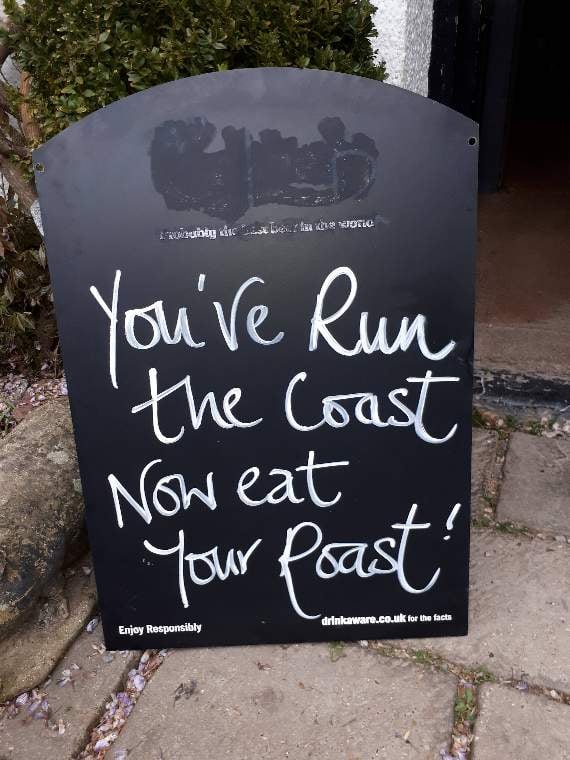 Probably the best beer in the world
You've Run
the Coast
Now eat
Your Roast!
Enjoy Responsibly
drinkaware.co.uk for the facts